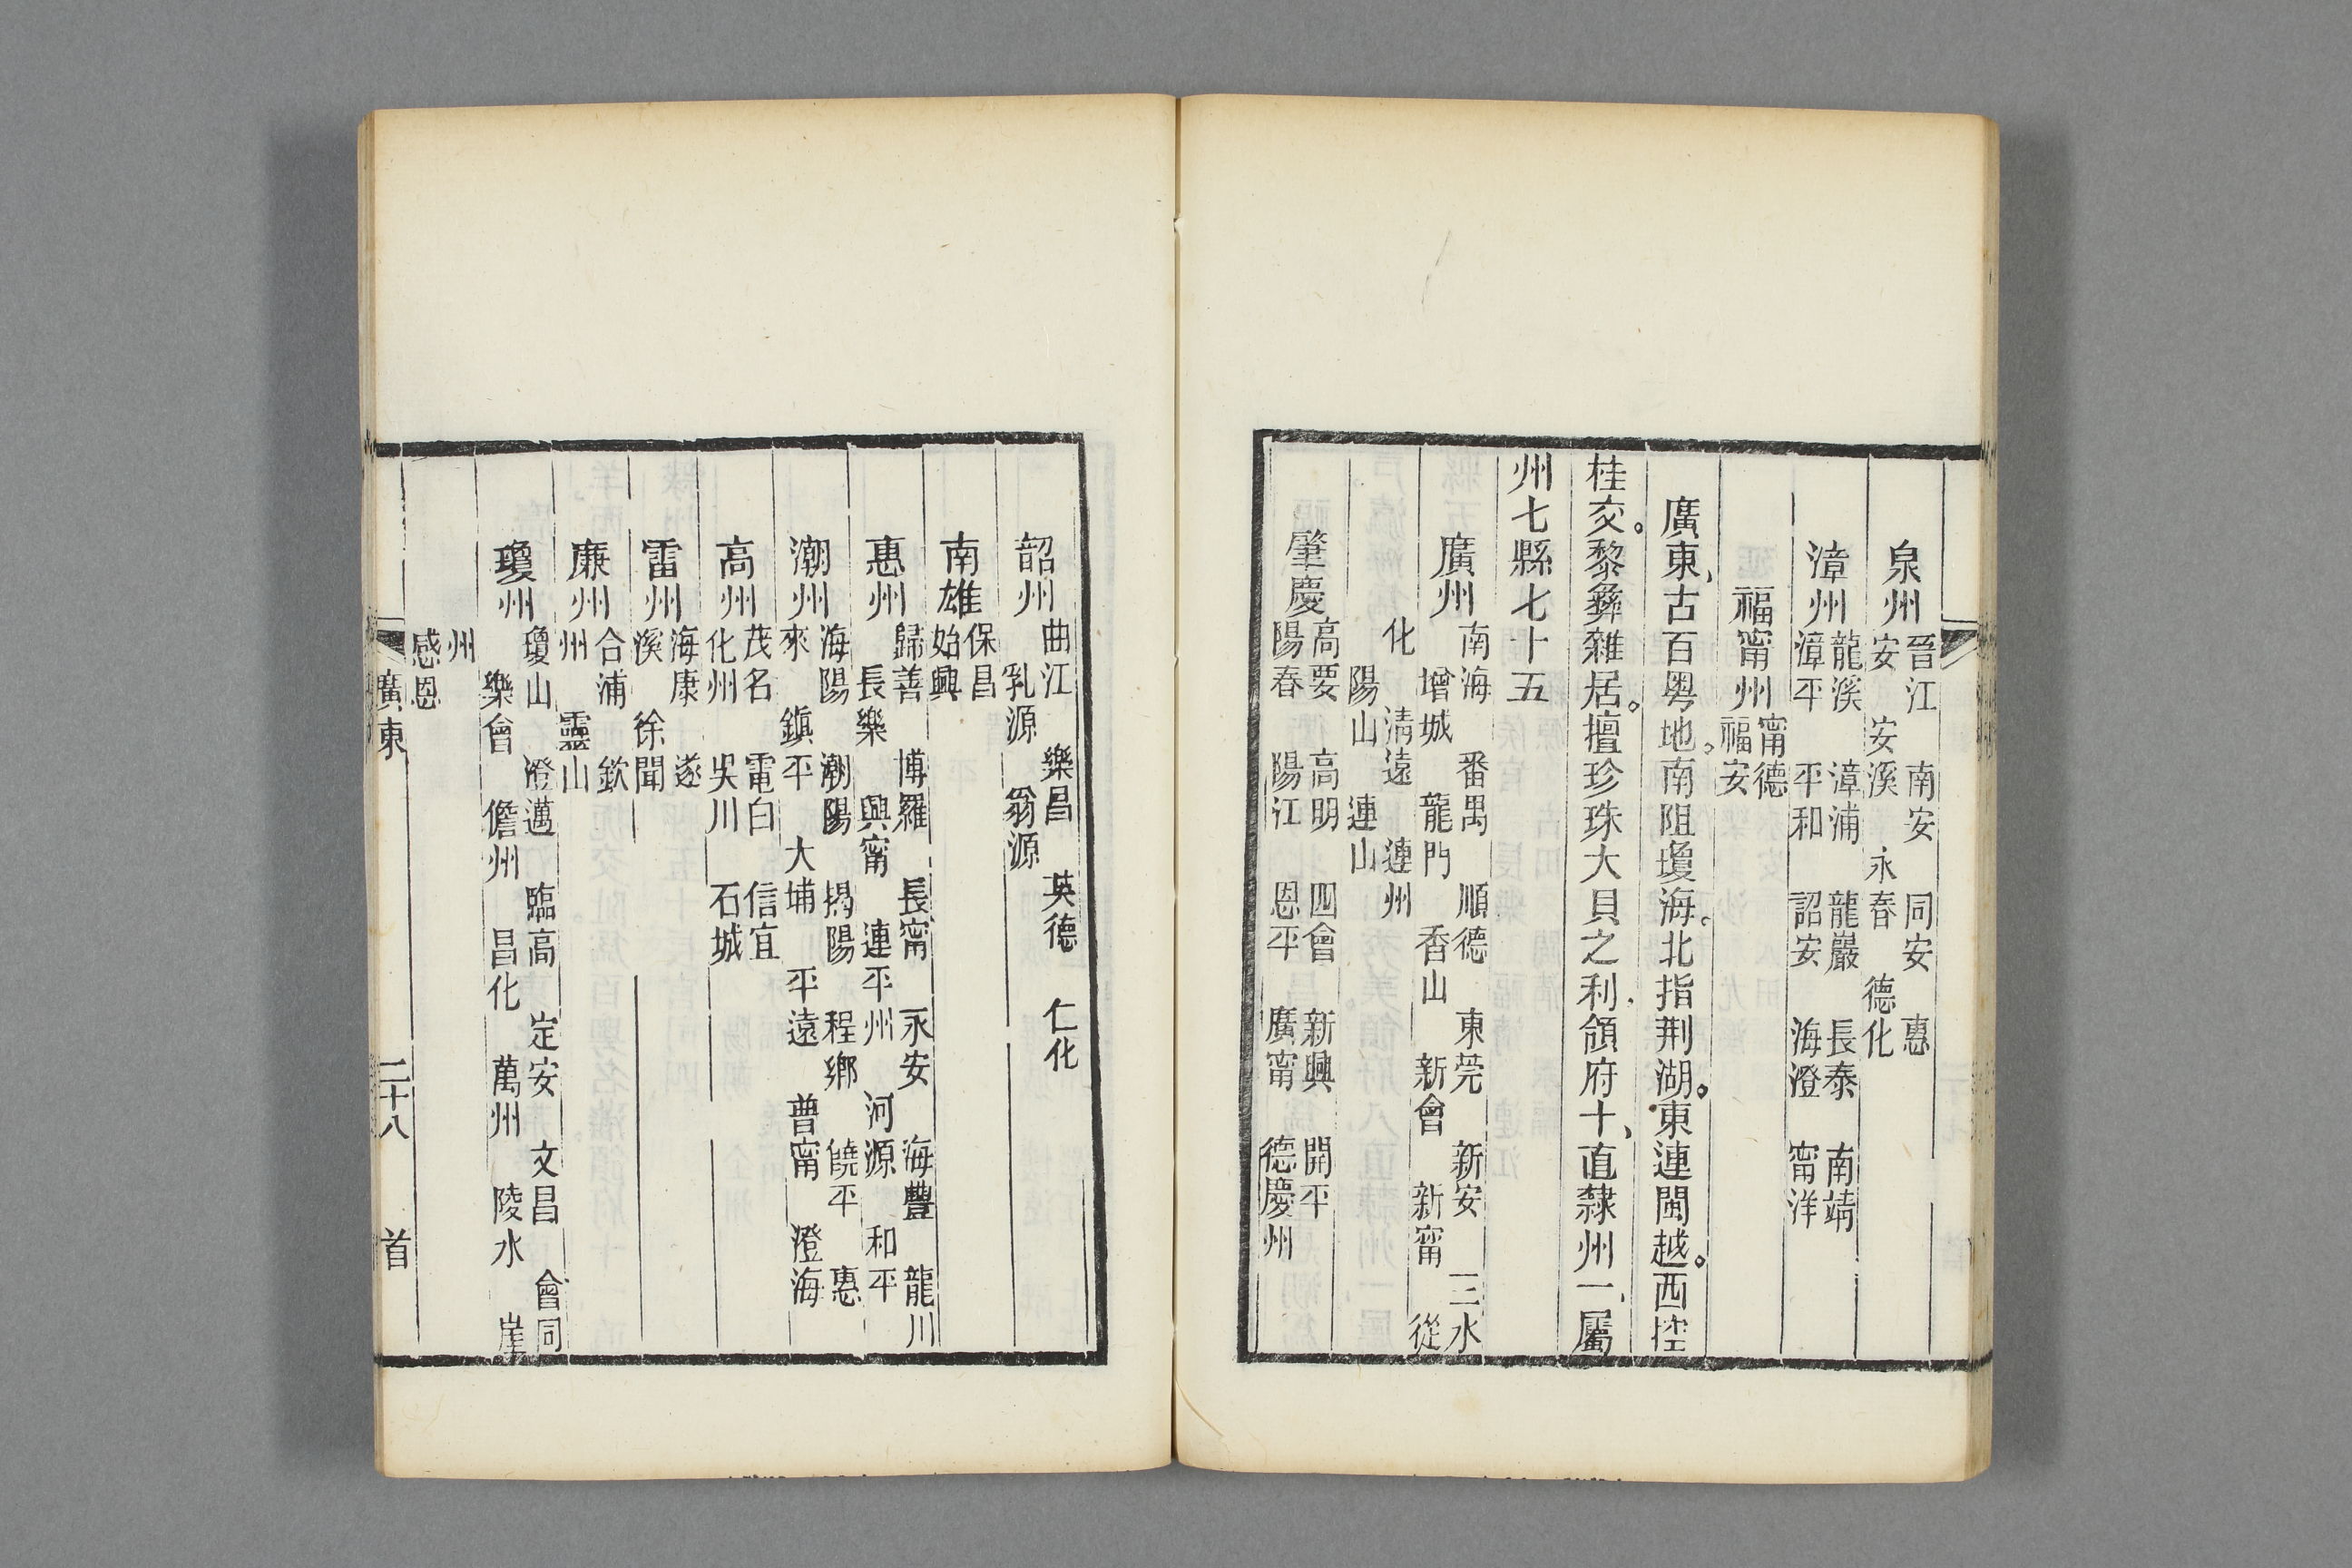 泉州
晉江 南安 同安 惠
安 安溪 永春 德化
漳州
龍溪 漳浦 龍巖 長泰 南靖
漳平 平和 詔安 海澄 甯洋
福甯州
甯德
福安
廣東、古百粵地。南阻瓊海。北指荆湖。東連閩越。西控
桂交。黎彝雜居。擅珍珠大貝之利、領府十、直隸州一、屬
州七縣七十五
廣州
南海 番禺 順德 東莞 新安 三水
增城 龍門 香山 新會 新甯 從
化 清遠 連州
陽山 連山
肇慶
高要 高明 四會 新興 開平
陽春 陽江 恩平 廣甯 德慶州
韶州
曲江 樂昌 英德 仁化
乳源 翁源
南雄
保昌
始興
惠州
歸善 博羅 長甯 永安 海豐 龍川
長樂 興甯 連平州 河源 和平
潮州
海陽 潮陽 揭陽 程鄉 饒平 惠
來 鎮平 大埔 平遠 普甯 澄海
高州
茂名 電白 信宜
化州 吳川 石城
雷州
海康 遂
溪 徐聞
廉州
合浦 欽
州 靈山
瓊州
瓊山 澄邁 臨高 定安 文昌 會同
樂會 儋州 昌化 萬州 陵水 崖
州
感恩
廣東 二十八 首